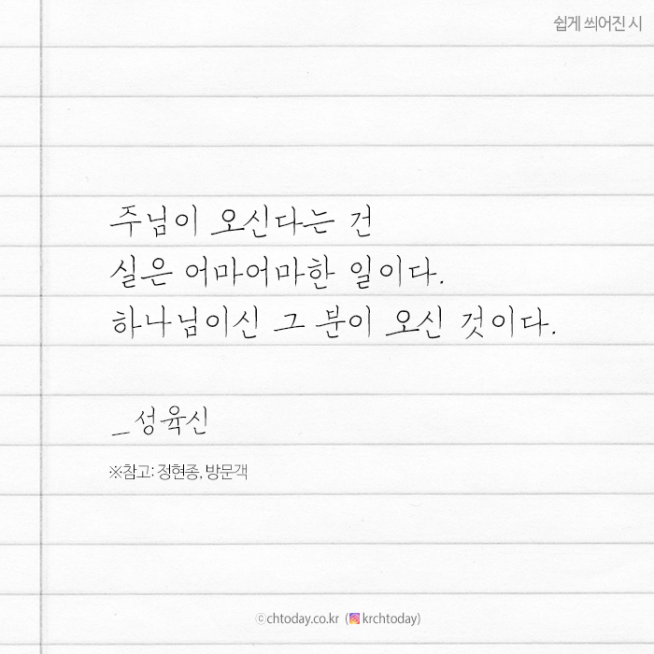 쉽게 씌어진 시
주님이 오신다는 건
실은 어마어마한 일이다.
하나님이신 그 분이 오신 것이다.
_성육신
※참고: 정현종, 방문객
ⓒchtoday.co.kr (krchtoday)